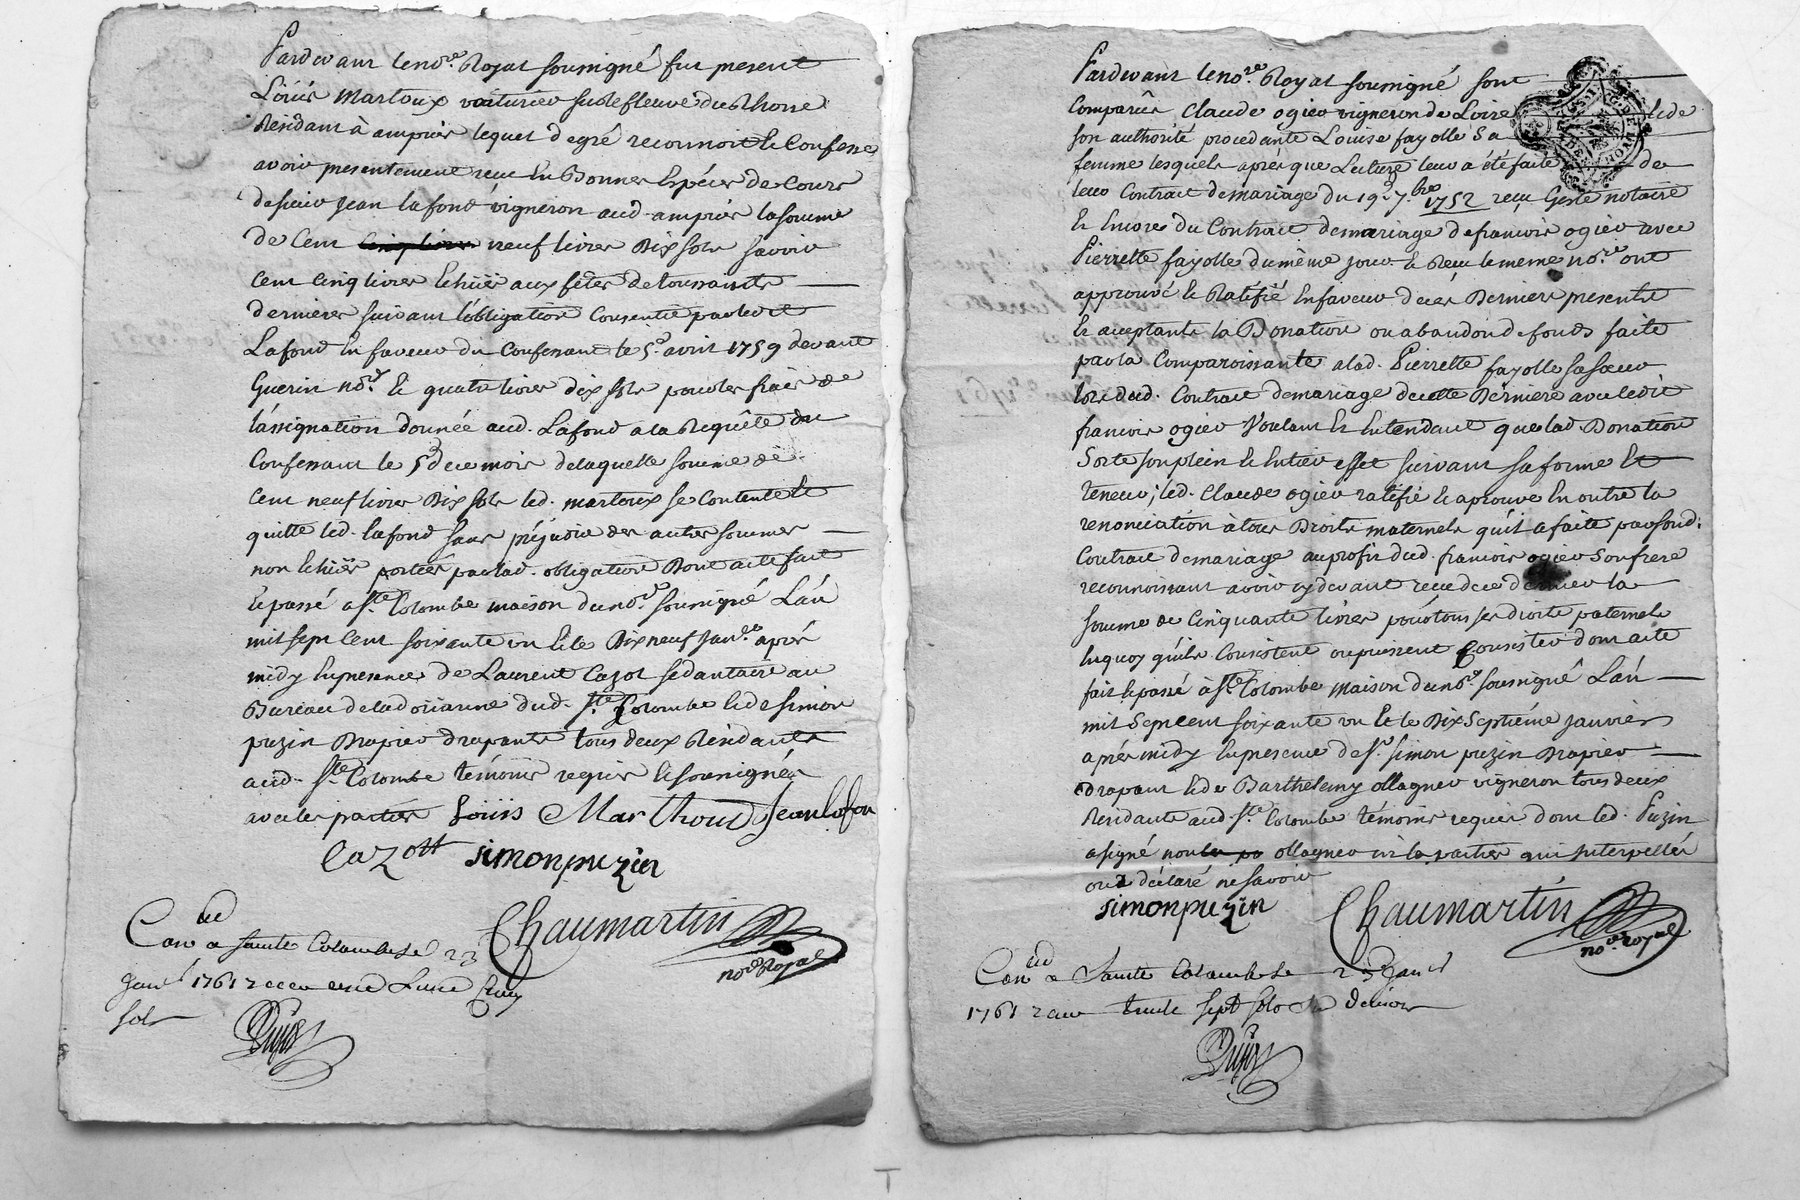 Pardevant le no.re Royal soussigné fut present
Loüis Martoux voiturier sur le fleuve du Rhone
Residant à ampuis lequel de gré reconnoit & Confesse
avoir presentement receu En Bonnes Espéces de Cours
de sieur jean lafond vigneron aud. ampuis la somme
de Cent cinq livres neuf livres Dix sols savoir
Cent cinq livres Echües aux fêtes de toussaints
dernieres suivant l'obligation Consentie par ledit
Lafond En faveur du Confessant le 5.e avril 1759 devant
Guerin no.re & quatre livres dix sols pour les frais de
l'assignation donnée aud. Lafond a la Requête du
Confessant le 5e de ce mois de laquelle somme de
Cent neuf livres Dix sols led. martoux se Contente Et
quitte led. lafond sans préjudice des autres sommes
non Echües portées par lad. obligation Dont acte fait
& passé a Ste Colombe maison du no.re soussigné L'an
mil sept cent soixante un & le Dix neuf janv.er après
midy En presence de Laurent Cazot sedantaire au
Bureau de la doüanne dud. Ste Colombe & de simon
puzin Drapier drapant tous deux Résidants
aud. Ste Colombe témoins requis & soussignés
avec les parties Loüis Marthoud Jean lafon
Cazott simon puzin
Chaumartin
no.re Royal
Con.lé a Sainte Colombe le 23
Janv.r 1761 receu une Livre cinq
sols
Dujast
Pardevant le no.re Royal soussigné sont
Comparus Claude ogier vigneron de Loire & de
son authorité procedante Louise fayolle Sa
femme lesquels après que Lecture leur a été faite de
leur Contract de mariage du 19e 7.bre 1752 reçu Geste notaire
Et Encores du Contract de mariage de francois ogier avec
Pierrette fayolle du même jour & Reçu le meme no.re ont
approuvé & Ratifié En faveur de ces Derniers presents
Et acceptants la Donation ou abandon de fonds faite
par la Comparoissante a lad. Pierrette fayolle sa soeur
lors dud. Contract de mariage de cette Derniere avec ledit
francois ogier Voulant Et Entendant que lad. Donation
Sorte son plein & Entier effet suivant sa forme Et
teneur; led. Claude ogier ratifie & aprouve En outre la
renonciation à tous Droits maternels qu'il a faite par sond.
Contract de mariage au profit dud. francois ogier Son frere
reconnoissant avoir cy devant receu de ce dernier la
somme de Cinquante livres pour tous ses droits paternels
En quoy qu'ils Consistent ou puissent Consister dont acte
fait & passé à Ste Colombe maison du no.re soussigné L'an
mil Sept cent soixante un Et le Dix Septiéme janvier
après midy En presence de Sr simon puzin Drapier
drapant & de Barthelemy ollagnier vigneron tous deux
Residants aud. Ste Colombe témoins requis dont led. Puzin
a signé non ollagnier ni les parties qui Interpellés
ont déclaré ne savoir
simon puzin
Chaumartin
no.re Royal
Con.lé a Sainte Colombe le 23 Janv.r
1761 receu trente sept sols six deniers
Dujast